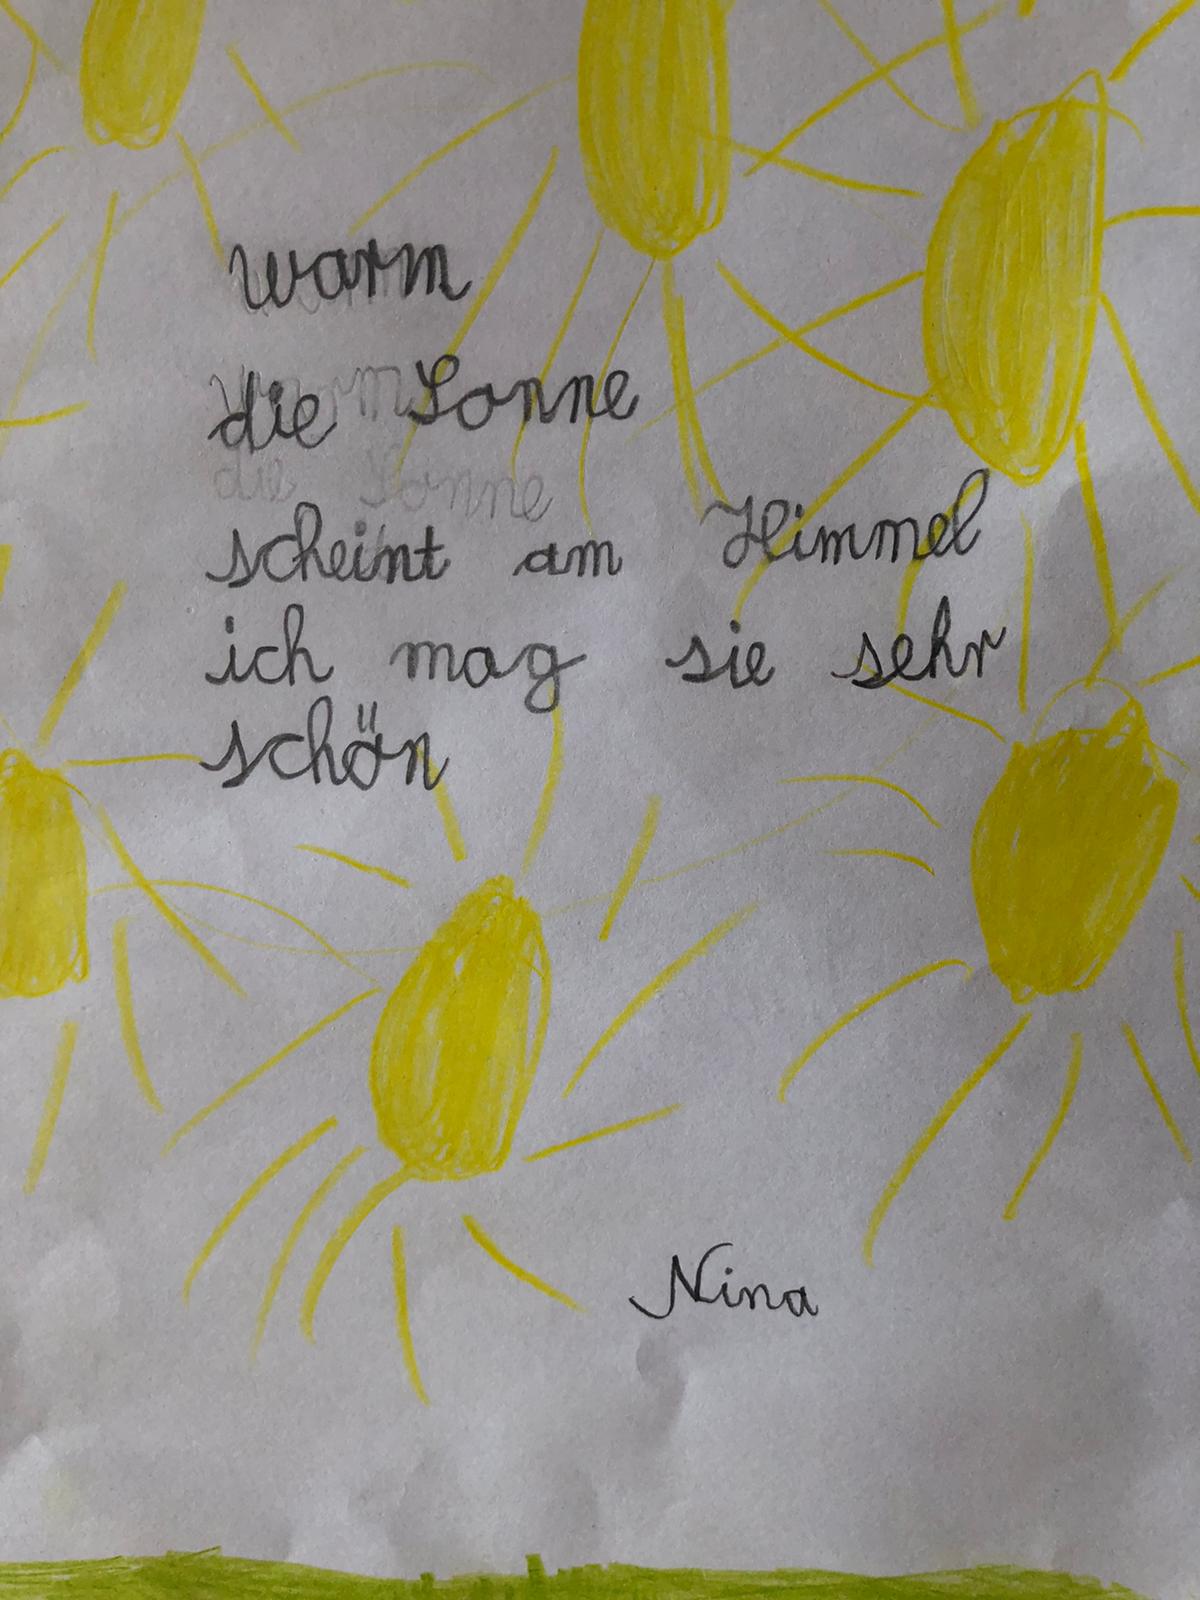 warm
die Sonne
scheint am Himmel
ich mag sie sehr
schön
Nina